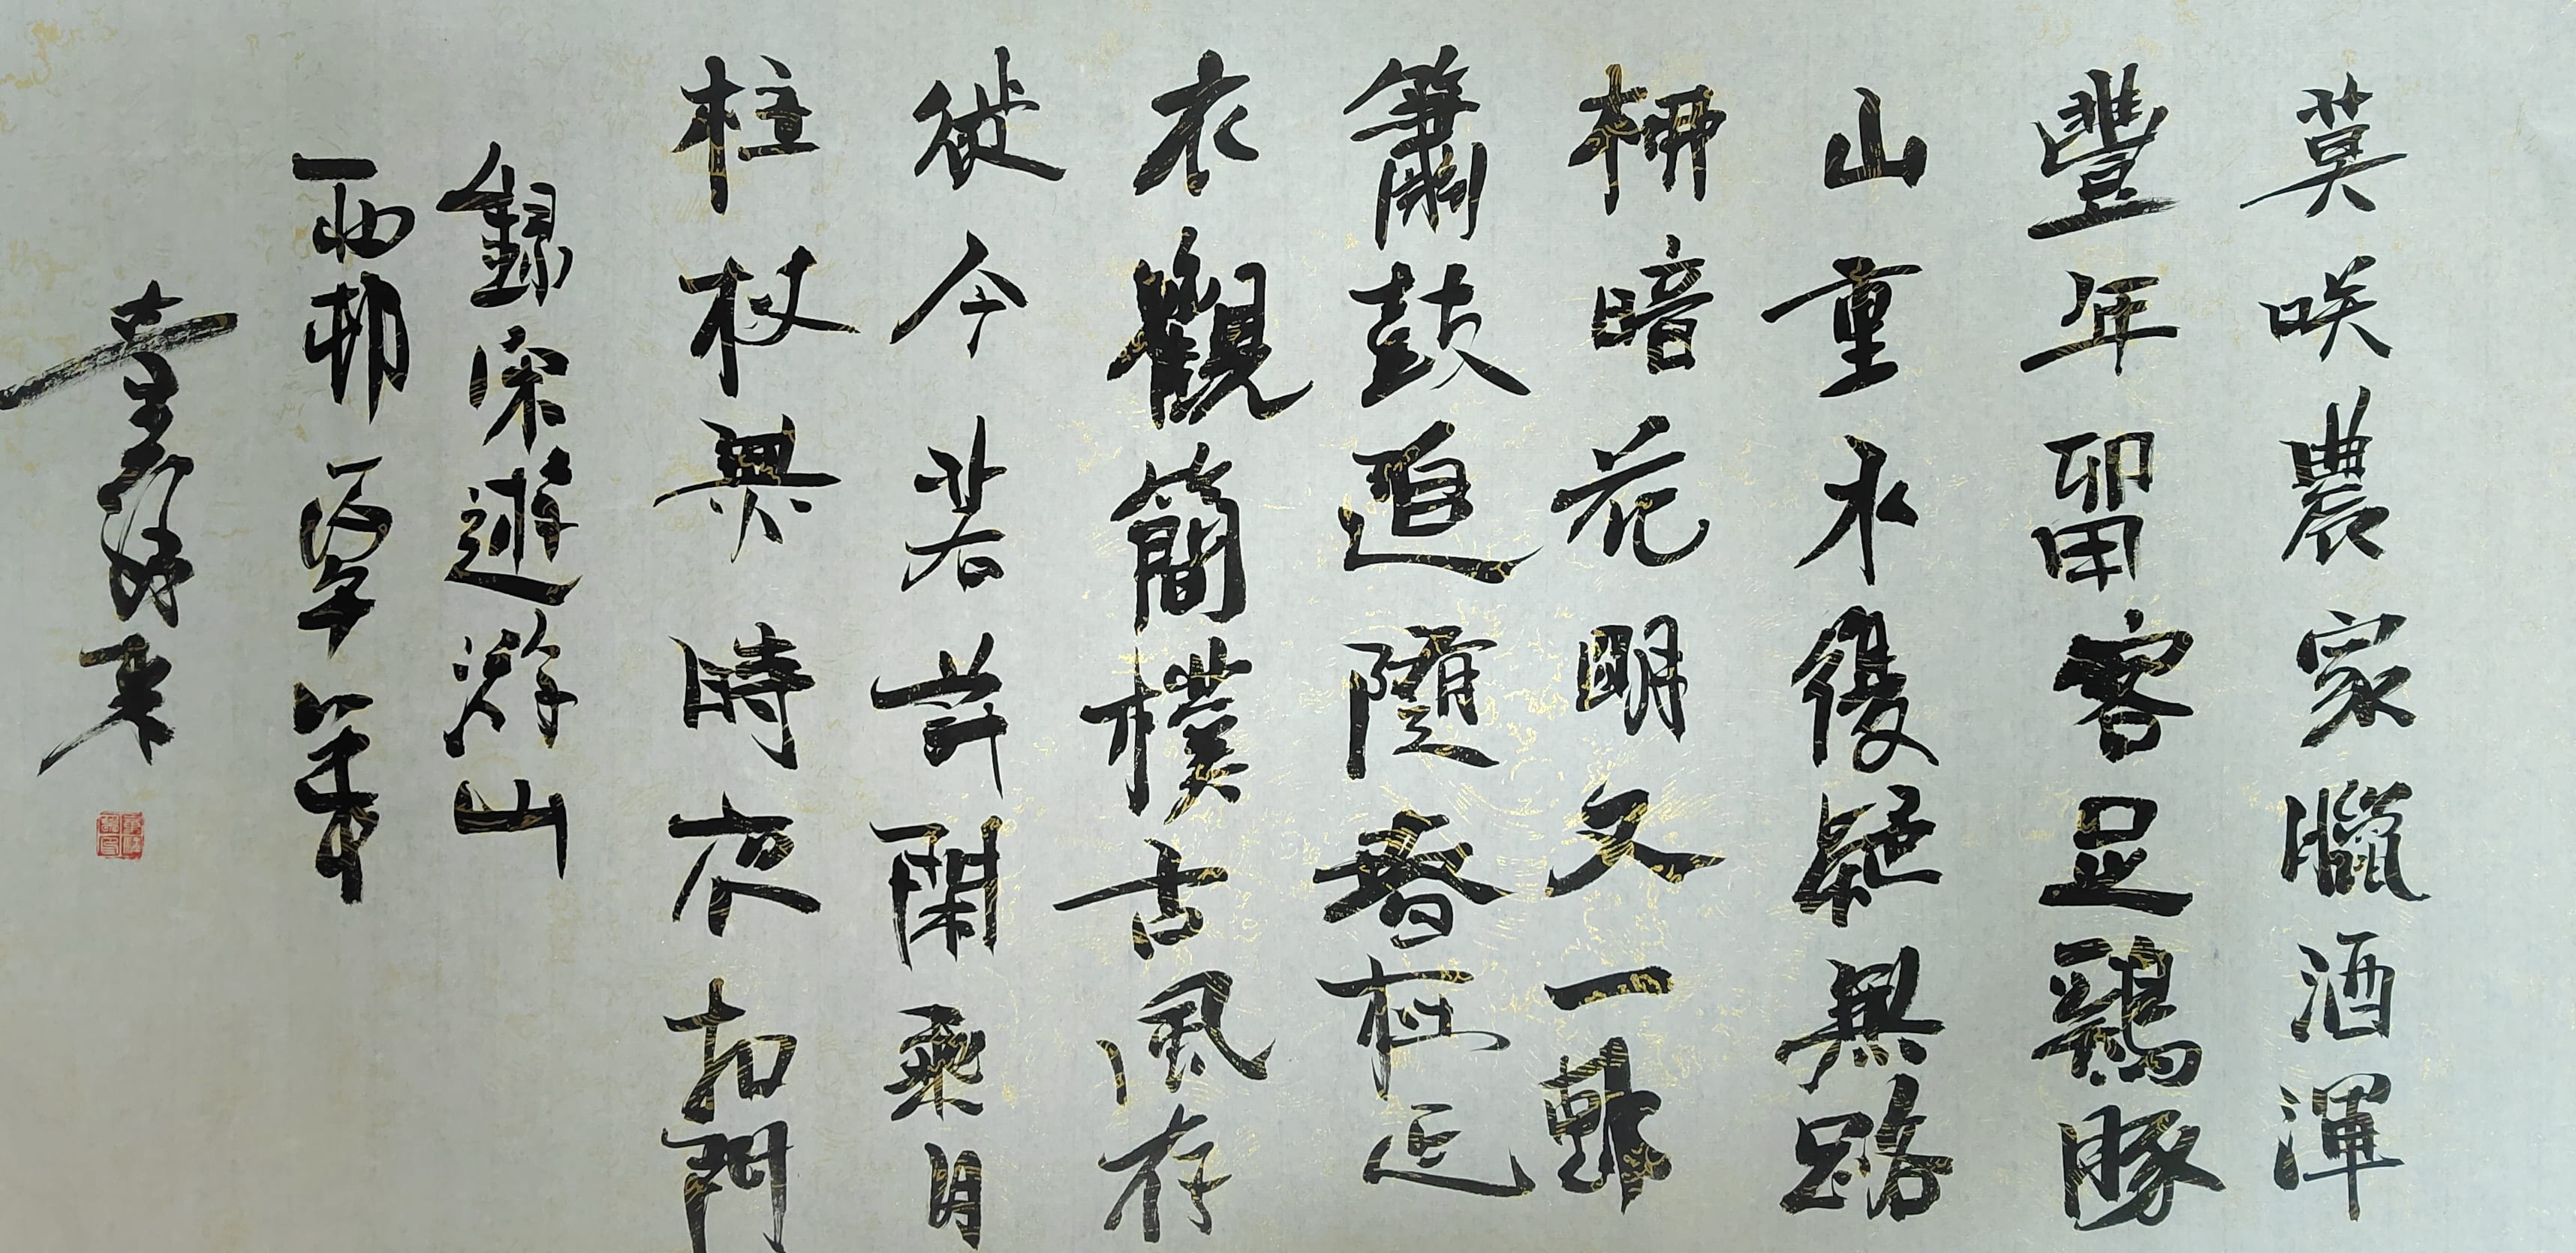 莫咲農家臘酒渾
豐年留客足鷄豚
山重水復疑無路
柳暗花明又一邨
簫鼓追隨春社近
衣觀簡樸古風存
從今若許閑乘月
柱杖無時夜扣門
錄宋遊游山
西邨丙午